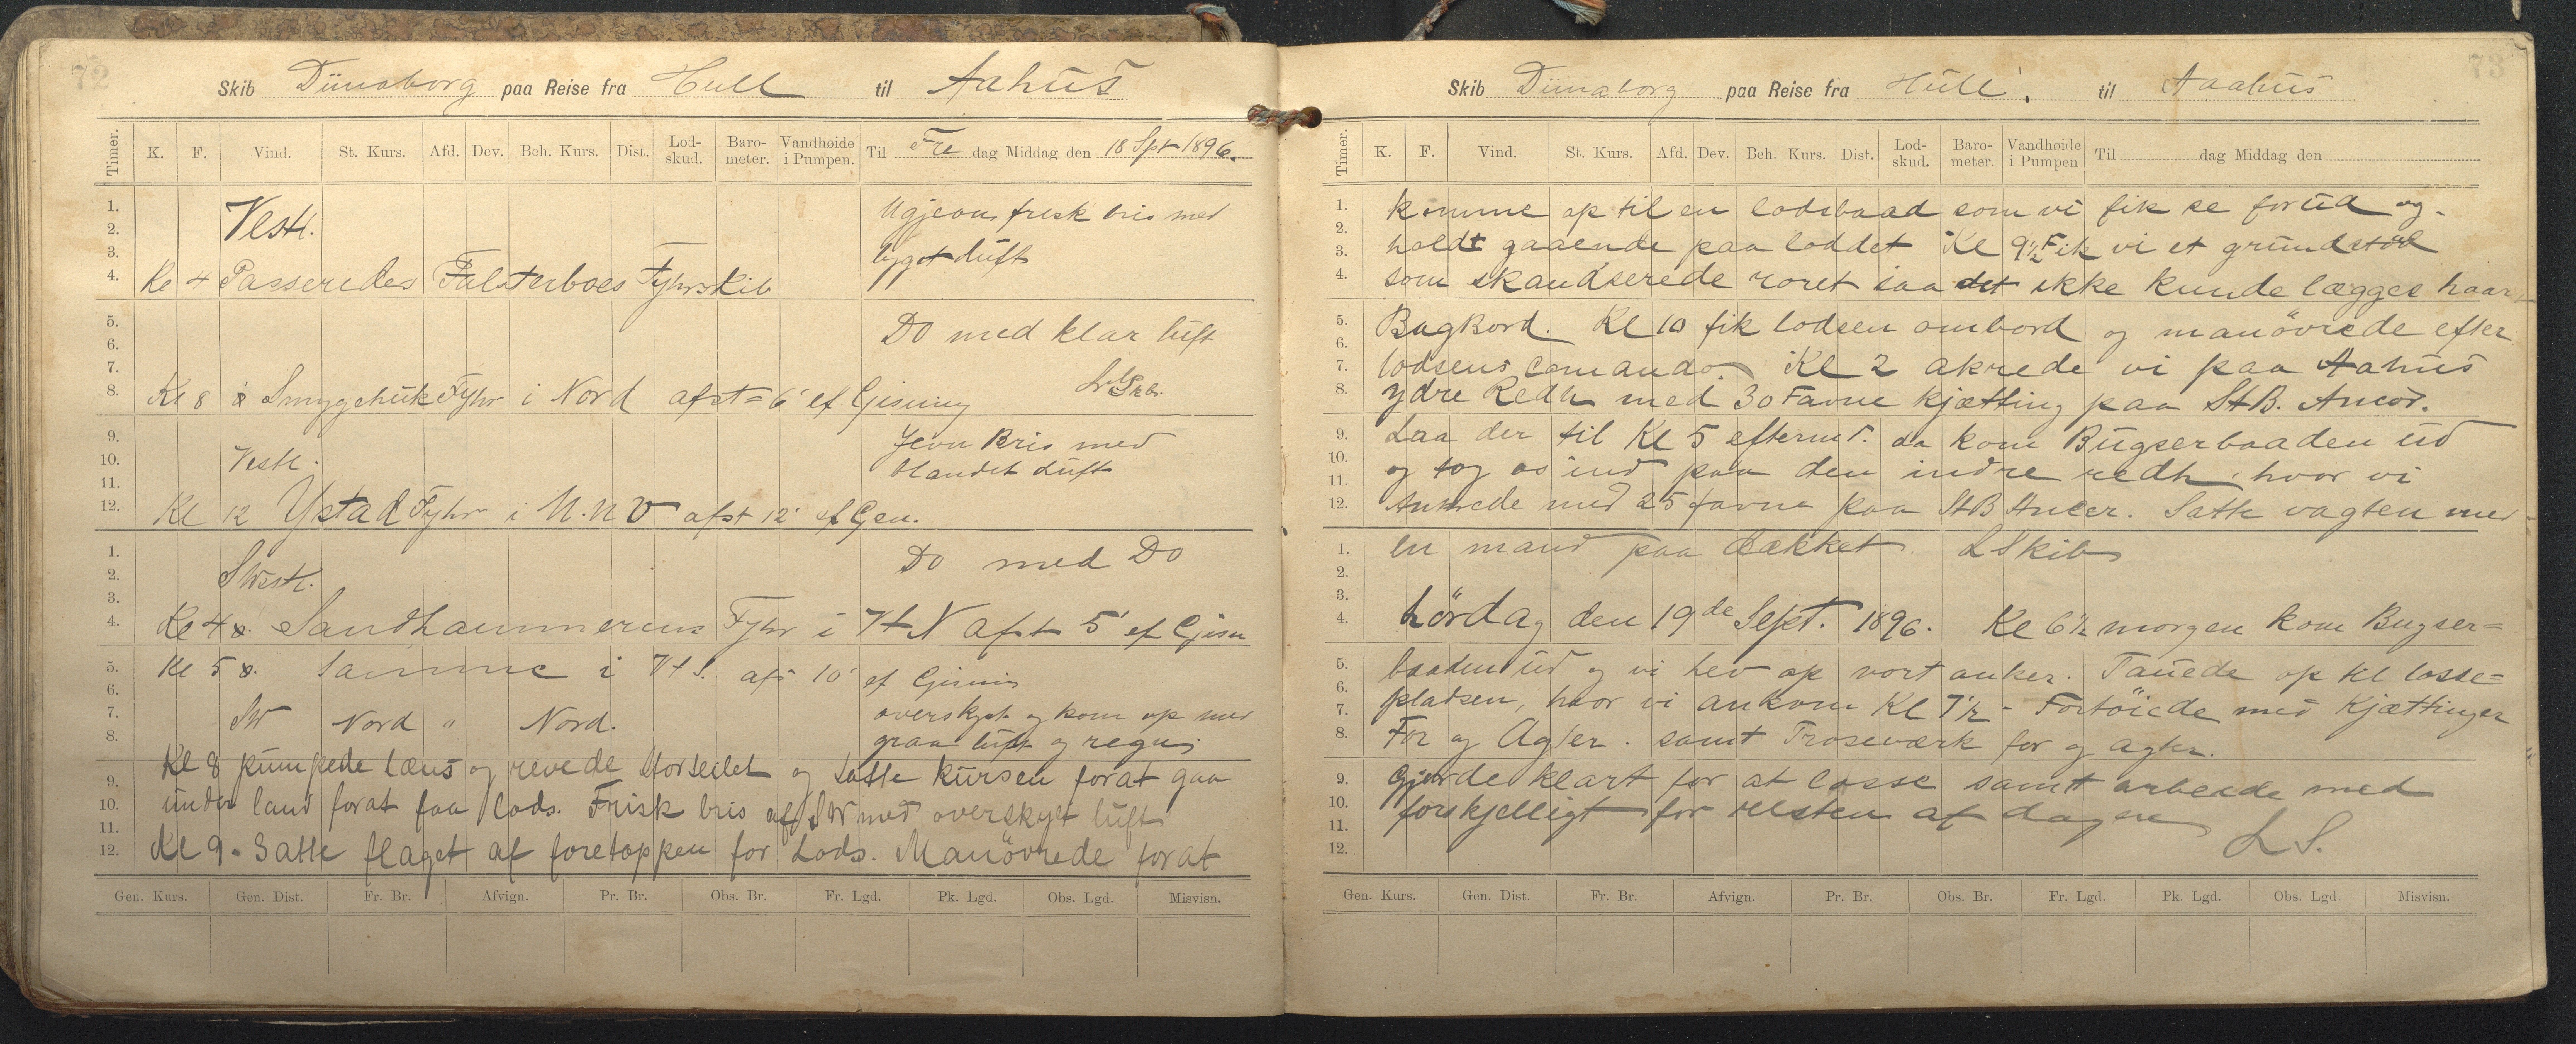 72
Skib Dünaborg paa Reise fra Hull til Aahus
Timer. K. F. Vind. St. Kurs. Afd. Dev. Beh. Kurs. Dist. Lod-skud. Baro-meter. Vandhøide i Pumpen. Til Fre dag Middag den 18 Spt 1896.
1.
2.
3.
4.
Vestl.
frisk bris med
luft
Kl 4 Passeredes Falsterboes Fyhrskib
5.
6.
7.
8.
DO med klar luft
Kl 8 x Smygehuk Fyhr i Nord afst = 6' ef Gisning
9.
10.
11.
12.
Jevn Bris med
blandet Luft
Vestl.
Kl 12 Ystad Fyhr i N.N.V afst 12' ef Gsn.
1.
2.
3.
4.
DO med DO
SWestl.
Kl 4 x. Sandhammerens Fyhr i VtN afst 5' ef Gisn
5.
6.
7.
8.
Kl 5 x. Samme i VtS. afs 10' ef Gisning
SW Nord " Nord.
overskyet og kom op med
graa luft og regn
9.
10.
11.
12.
Kl 8 pumpede læns og revede Storseilet og satte kursen forat gaa
under land forat faa lods. Frisk bris af SW med overskyet luft
Kl 9. Satte flaget af foretoppen for Lods. Manövrede forat
Gen. Kurs. Gen. Dist. Fr. Br. Afvign. Pr. Br. Obs. Br. Fr. Lgd. Pk. Lgd. Obs. Lgd. Misvisn.
73
Skib Dünaborg paa Reise fra Hull. til Aaahus
Timer. K. F. Vind. St. Kurs. Afd. Dev. Beh. Kurs. Dist. Lod-skud. Baro-meter. Vandhøide i Pumpen Til dag Middag den
1.
2.
3.
4.
komme op til en lodsbaad som vi fik se forud og
holdt gaaende paa loddet Kl 9½ Fik vi et grundstöd
som skandserede roret saa det ikke kunde lægges haar
5.
6.
7.
8.
Bagbord. Kl 10 fik lodsen ombord og manövrede efter
lodsens Comando. Kl 2 akrede vi paa Aahus
ydre Redh med 30 Favne kjætting paa StB. Ancor.
9.
10.
11.
12.
Laa der til Kl 5 eftermd. da kom Bugserbaaden ud
og tog os ind paa den indre redh, hvor vi
Ankrede med 25 favne paa StB Ancer. Satte vagten med
1.
2.
3.
4.
en mand paa dækket. LSkib
Lördag den 19de Sept. 1896. Kl 6½ morgen kom Bugser=
5.
6.
7.
8.
baaden ud og vi hev op vort anker. Tauede op til losse=
pladsen, hvor vi ankom Kl 7½ - Fortöiede med Kjættinger
For og Agter. samt Trosseværk for og agter.
9.
10.
11.
12.
Gjorde klart for at losse samt arbeide med
forskjelligt for resten af dagen
L S.
Gen. Kurs. Gen. Dist. Fr. Br. Afvign. Pr. Br. Obs. Br. Fr. Lgd. Pk. Lgd. Obs. Lgd. Misvisn.